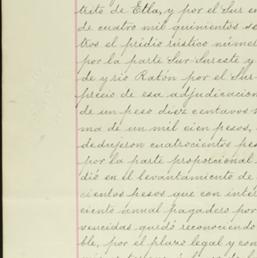 trito de Etla, y por el Sur en
de cuatro mil quinientos se
tros el pridio rústico númer
por la parte Sur-Sureste y
de y río Ratón por el Sur-
precio de esa adjudicacion
de un peso diez centavos
ma de un mil cien pesos,
dedujeron cuatrocientos pes
por la parte proporcional
dió en el levantamiento de
cientos pesos que con inter
ciento anual pagadero por
vencidas quedó reconociendo
ble, por el plazo legal y con